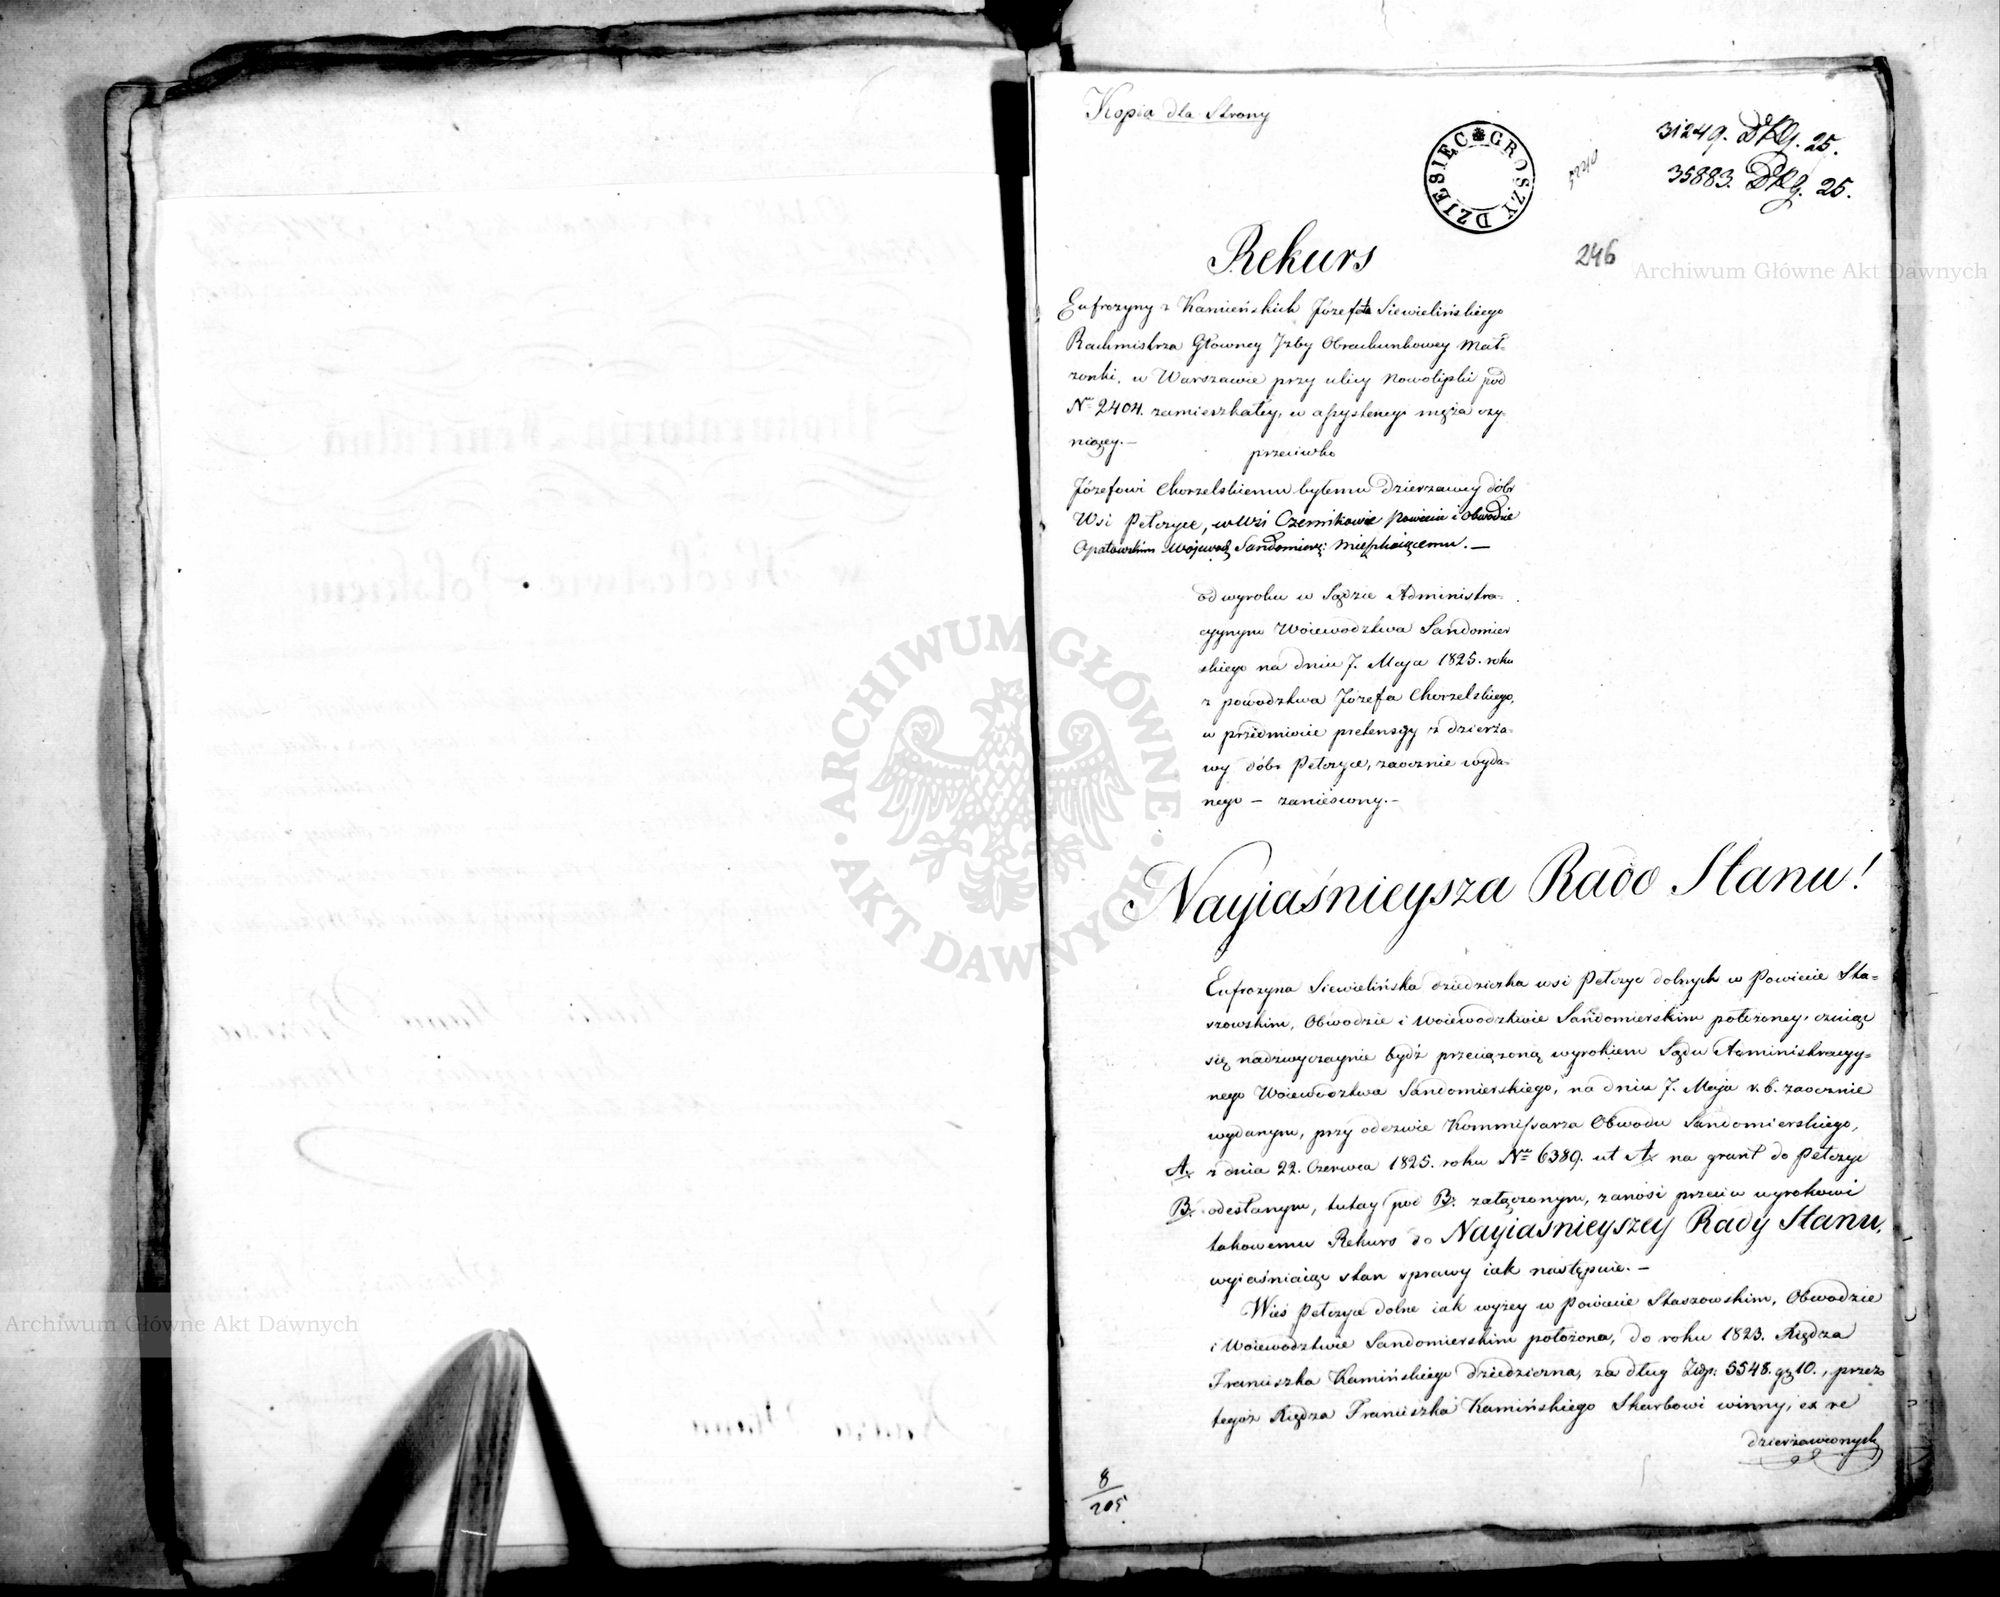 Kopia dla Strony
DZIESIĘC GROSZY
31249. DKG. 25.
35883. DKG. 25.
246
Rekurs
Eufrozyny z Kamieńskich Józefata Siewielińskiego
Rachmistrza Główney Jzby Obrachunkowey Mał=
żonki, w Warszawie przy ulicy Nowolipki pod
Nr 2404. zamieszkałéy, w assystencyi męża czy=
niącey.—
przeciwko
Józefowi Chorzelskiemu byłemu dzierżawcy dóbr
Wsi Pełczyce, w Wsi Czernikowie Powiecie i Obwodzie
Opatowskim Wojewod. Sandomierz: mieszkaiącemu.—
od wyroku w Sądzie Administra=
cyynym Woiewodztwa Sandomier
skiego na dniu 7. Maja 1825. roku
z powodztwa Józefa Chorzelskiego,
w przedmiocie pretensyy z dzierża=
wy dóbr Pełczyce, zaocznie wyda=
nego — zaniesiony.—
Nayiaśnieysza Rado Stanu!
Eufrozyna Siewielińska dziedziczka wsi Pełczyc dolnych w Powiecie Sta=
szowskim, Obwodzie i Woiewodztwie Sandomierskim położoney, czuiąc
się nadzwyczaynie bydź przeciążoną wyrokiem Sądu Administracyy=
nego Woiewodztwa Sandomierskiego, na dniu 7. Maja r. b. zaocznie
wydanym, przy odezwie Kommissarza Obwodu Sandomierskiego,
A. z dnia 22. Czerwca 1825. roku Nr 6389. ut A. na grunt do Pełczyc
B. odesłanym, tutay pod B. załączonym, zanosi przeciw wyrokowi
takowemu Rekurs do Nayiaśnieyszey Rady Stanu,
wyiaśniaiąc stan sprawy iak następuie.—
Wieś Pełczyce dolne iak wyżey w Powiecie Staszowskim, Obwodzie
i Woiewodztwie Sandomierskim położona, do roku 1823. Xiędza
Franciszka Kamińskiego dziedziczna, za dług Złp: 5548. gr 10., przez
tegoż Xiędza Franciszka Kamińskiego Skarbowi winny, ex re
dzierżawionych
8
205
Archiwum Główne Akt Dawnych
ARCHIWUM GŁÓWNE · AKT DAWNYCH ·
Archiwum Główne Akt Dawnych